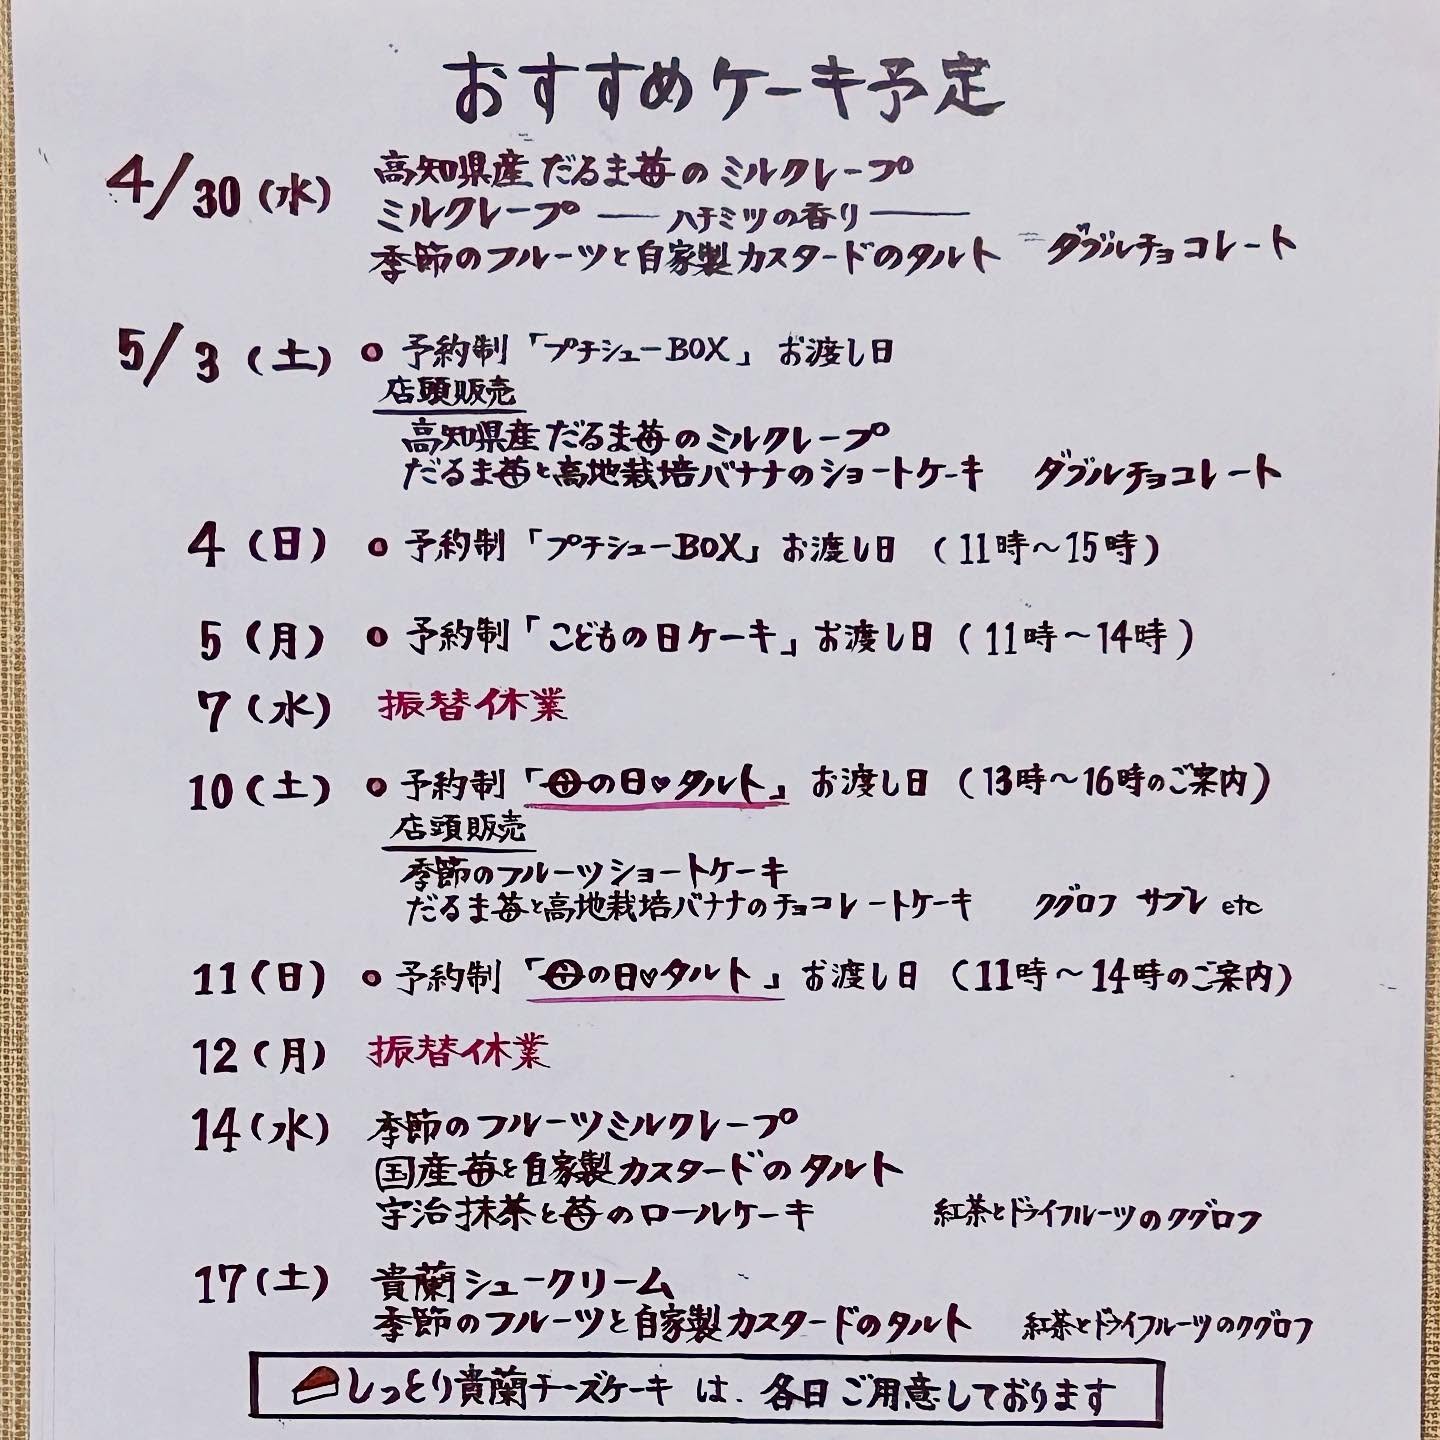 おすすめケーキ予定
4/30(水) 高知県産だるま苺のミルクレープ
ミルクレープ ― ハチミツの香り ―
季節のフルーツと自家製カスタードのタルト ダブルチョコレート
5/3(土) ●予約制「プチシューBOX」お渡し日
店頭販売
高知県産だるま苺のミルクレープ
だるま苺と高地栽培バナナのショートケーキ ダブルチョコレート
4(日) ●予約制「プチシューBOX」お渡し日(11時〜15時)
5(月) ●予約制「こどもの日ケーキ」お渡し日(11時〜14時)
7(水) 振替休業
10(土) ●予約制「母の日♥タルト」お渡し日(13時〜16時のご案内)
店頭販売
季節のフルーツショートケーキ
だるま苺と高地栽培バナナのチョコレートケーキ クグロフ サブレ etc
11(日) ●予約制「母の日♡タルト」お渡し日(11時〜14時のご案内)
12(月) 振替休業
14(水) 季節のフルーツミルクレープ
国産苺と自家製カスタードのタルト
宇治抹茶と苺のロールケーキ 紅茶とドライフルーツのクグロフ
17(土) 貴蘭シュークリーム
季節のフルーツと自家製カスタードのタルト 紅茶とドライフルーツのクグロフ
しっとり貴蘭チーズケーキ は、各日ご用意しております